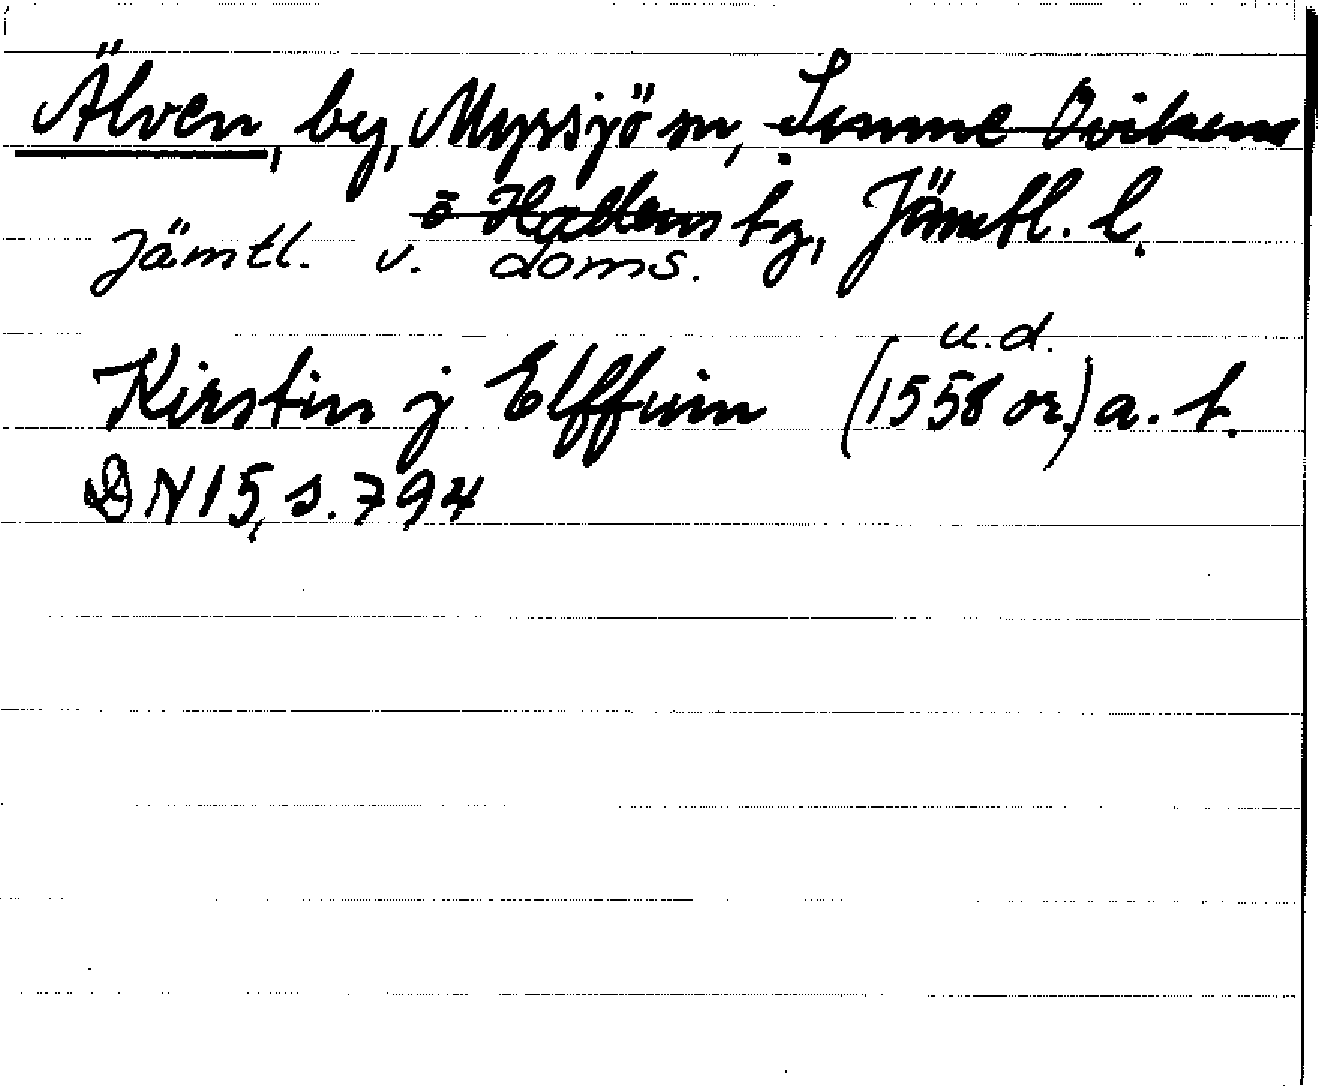 Älven, by, Myrsjö sn, Sunne Ovikens
o Hallens tg, Jämtl. l.
Jämtl. v. doms.
u.d.
Kirstin j Elffuin (1558 or.) a. t.
DN 15, s. 794